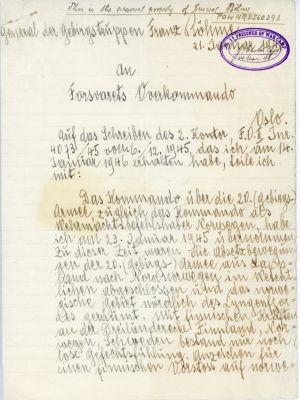 This is the personal property of General Böhme
POW NR 3560393
General der Gebirgstruppen Franz Böhme
PRISONER OF WAR
an
Forsvarets Overkommando
Oslo.
Auf das Schreiben des 2. Kontor, F.O.I Jnr.
4073/45 vom 6. 12. 1945, das ich am 14.
Januar 1946 erhalten habe, teile ich
mit:
Das Kommando über die 20. (Gebirgs)
Armee, zugleich das Kommando als
Wehrmachtbefehlshaber Norwegen, habe
ich am 23. Januar 1945 übernommen.
Zu dieser Zeit waren die Absetzbewegun-
gen der 20. (Gebirgs-) Armee aus Lapp-
land nach Nordnorwegen im Wesent-
lichen abgeschlossen und das norwe-
gische Gebiet nördlich des Lyngenfjor-
des geräumt. Mit finnischen Kräften
an der Dreiländerecke Finnland, Nor-
wegen, Schweden bestand nur noch
lose Gefechtsfühlung. Anzeichen für
einen finnischen Vorstoss auf norwe-